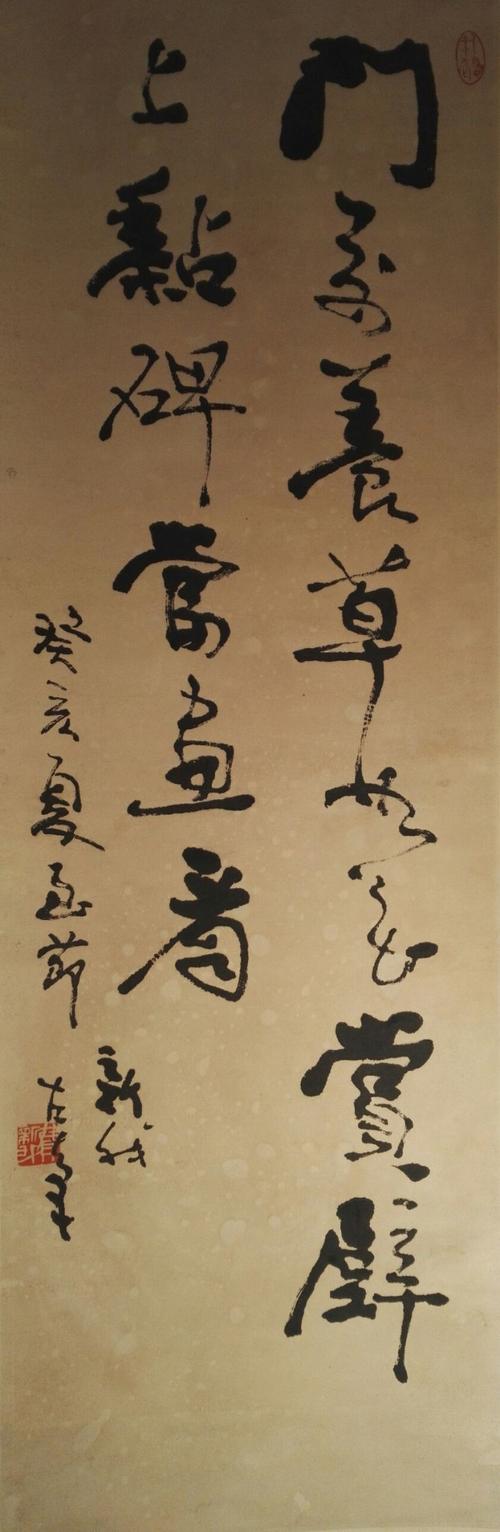 門前養草如花賞壁
上黏碑當畫看
癸亥夏至節
新我
左筆